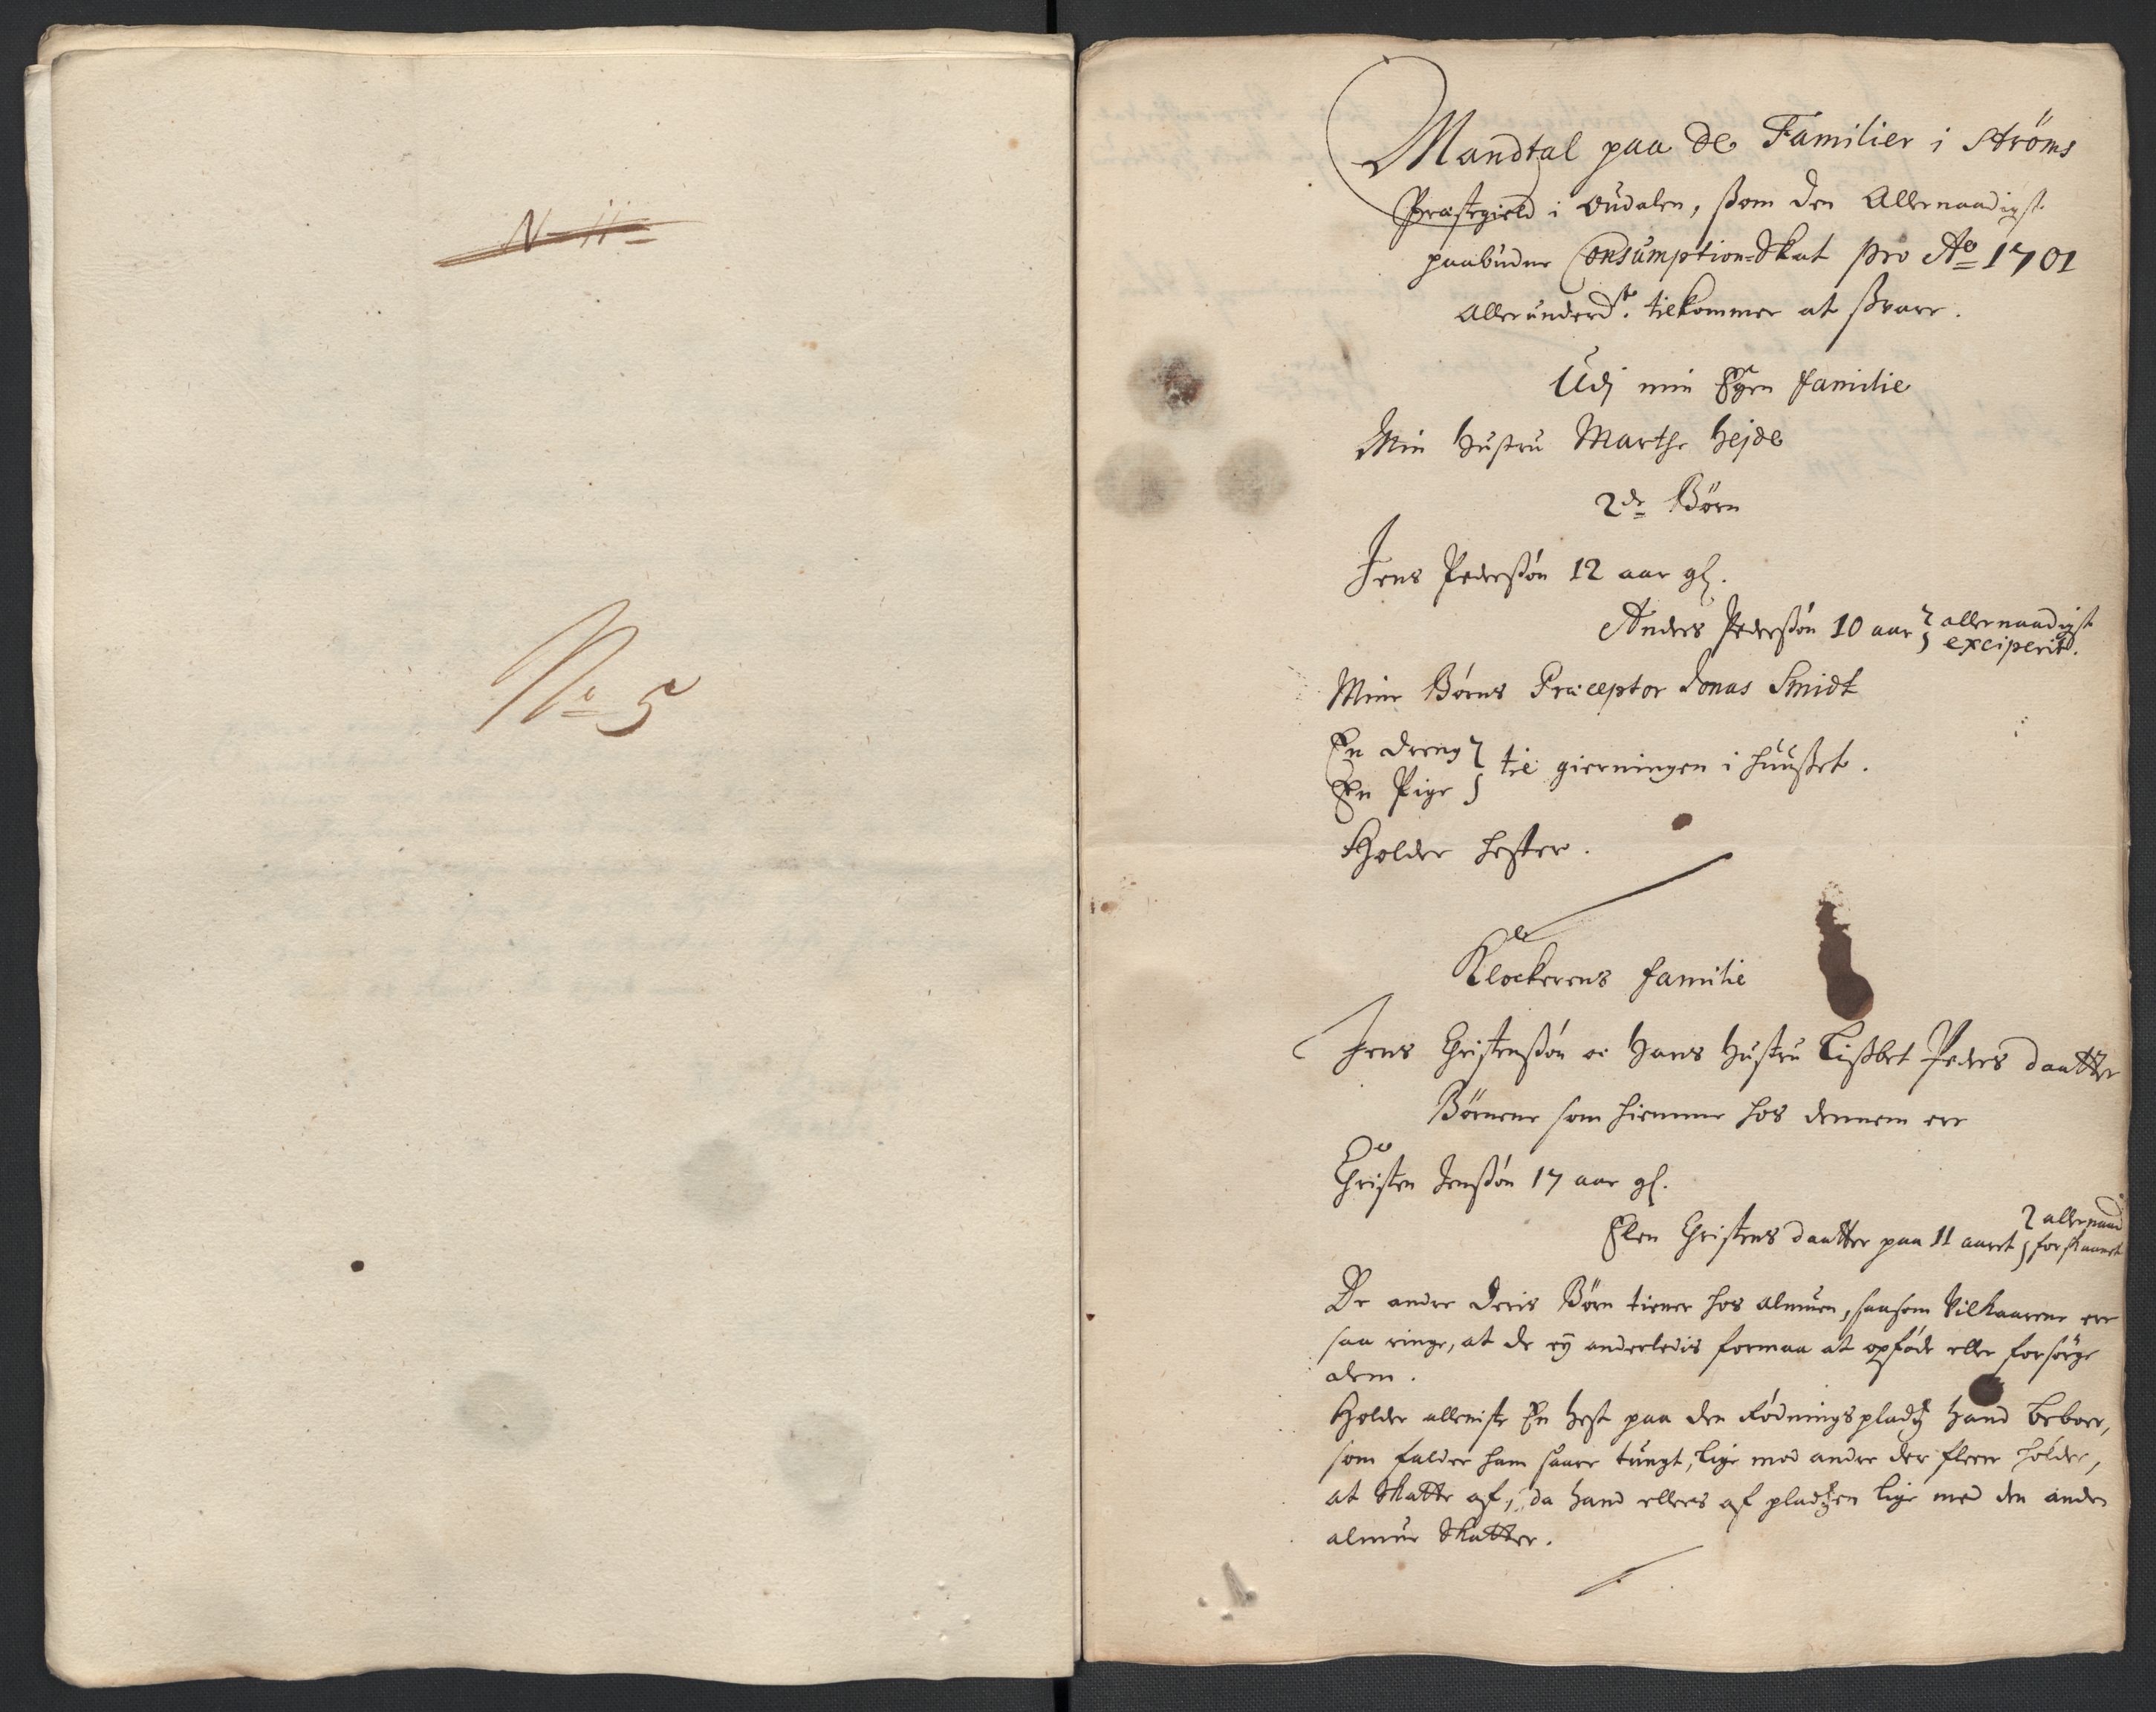 N 11
No 5
Mandtal paa de Familier i Ströms
Præstegield i Oudalen, ßom den Allernaadigst
paabudne Consumption-Skat pro Ao 1701
allerunderd.ste tilkommer at ßvare.
Udj min Egen familie
Min Hustru Marthe Hejde
2de Börn
Jens Pederßön 12 aar gl.
Anders Pederßön 10 aar } allernaadigst
exciperit.
Mine Börns Præceptor Jonas Smidt
En dreng }
En Pige } til gierningen i huußet.
Holder hester.
Klockerens familie
Jens Christenßön oc Hans Hustru Lißbet Peders daatter
Börnene som hiemme hos dennem ere
Christen Jenßön 17 aar gl.
Elen Christens daatter paa 11 aaret } allernaad
forskaanet
De andre deris Börn tiener hos almuen, saasom Vilkaarene ere
saa ringe, at de eÿ anderledis formaa at opföde eller forsörge
dem.
Holder alleniste En Hest paa den Rödningspladtz Hand beboer,
som falder ham saare tungt, lige mod andre der fleere holder,
at Skatte af, da Hand ellers af pladtzen lige med den anden
almue Skatter.